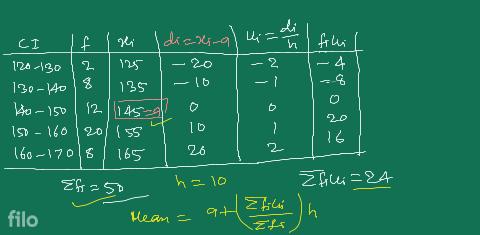 CI f xi di=xi-a ui=di/h fiui
120-130 2 125 -20 -2 -4
130-140 8 135 -10 -1 -8
140-150 12 145=a 0 0 0
150-160 20 155 10 1 20
160-170 8 165 20 2 16
Σfi=50 h=10 Σfiui=24
Mean = a+(Σfiui/Σfi)h
filo